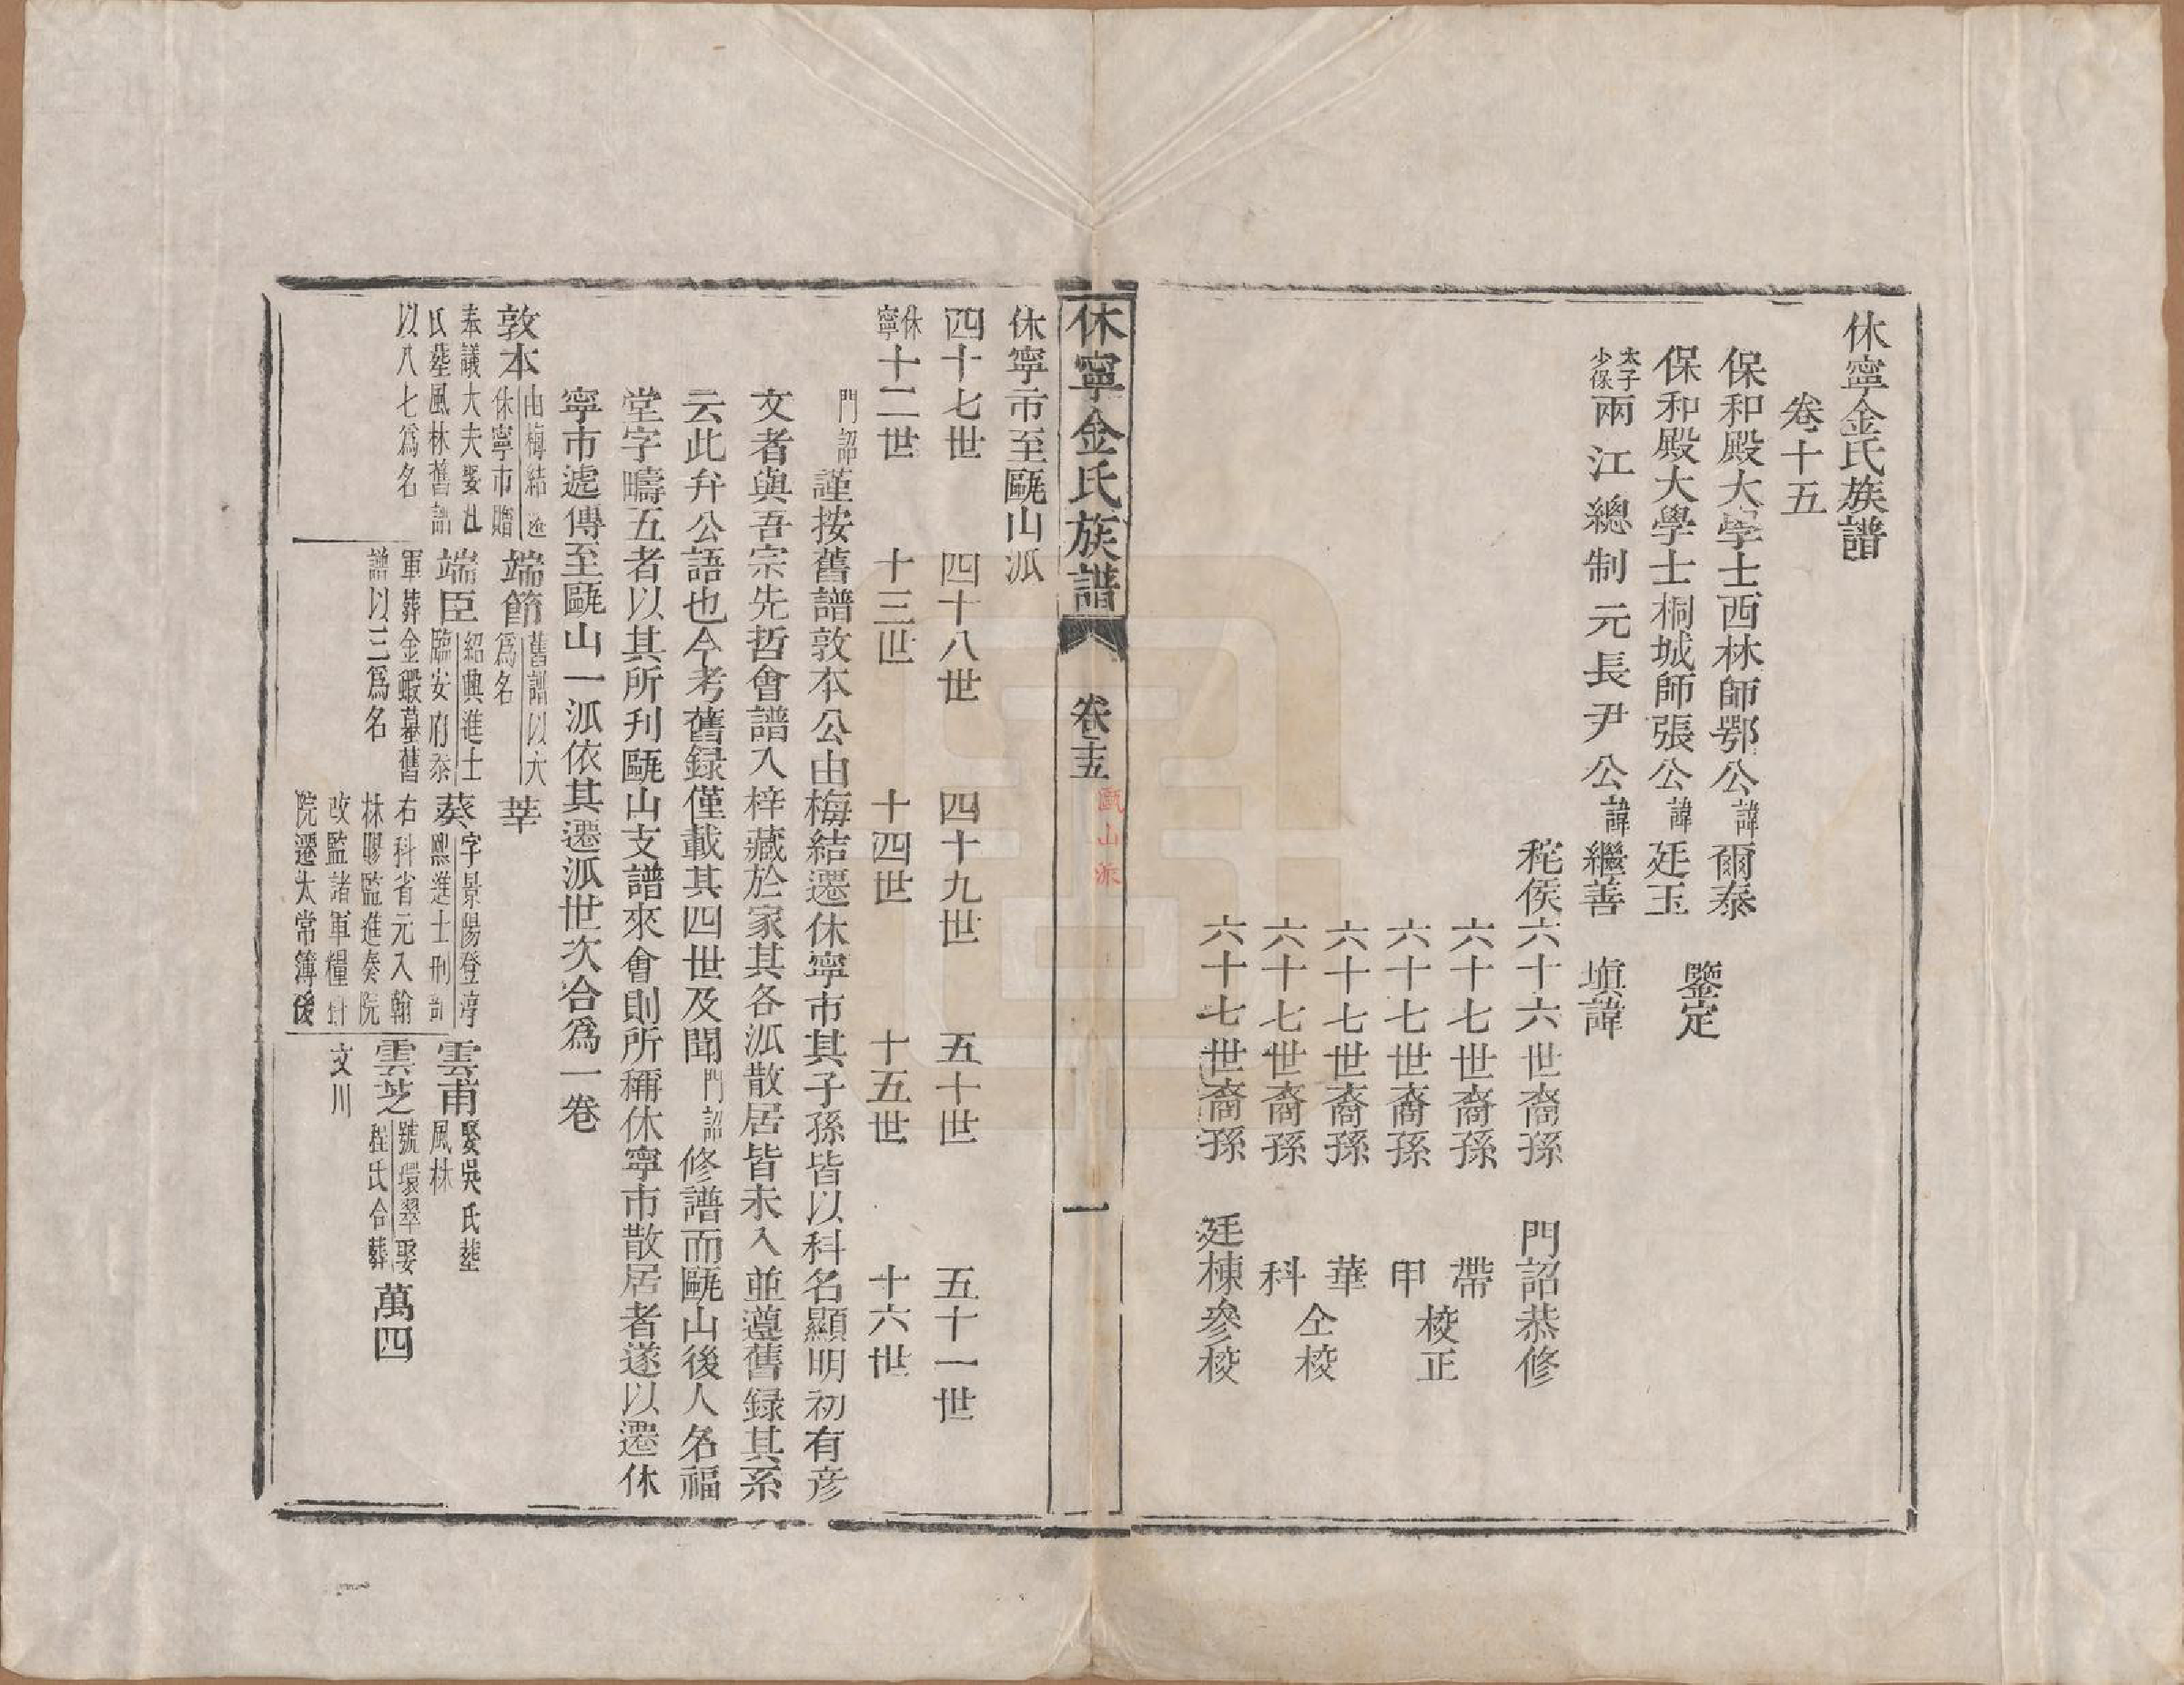 休寧金氏族譜
卷十五
保和殿大學士西林師鄂公諱爾泰
保和殿大學士桐城師張公諱廷玉
鑒定
太子少保兩江總制元長尹公諱繼善 填諱
秺侯六十六世裔孫 門詔恭修
六十七世裔孫 帶
六十七世裔孫 甲
校正
六十七世裔孫 華
六十七世裔孫 科
仝校
六十七世裔孫 廷棟參校
休寧金氏族譜 卷十五 甌山派 一
休寧市至甌山派
四十七世 四十八世 四十九世 五十世 五十一世
休寧十二世 十三世 十四世 十五世 十六世
門詔謹按舊譜敦本公由梅結遷休寧市其子孫皆以科名顯明初有彦
文者與吾宗先哲會譜入梓藏於家其各派散居皆未入並遵舊録其系
云此弁公語也今考舊録僅載其四世及聞門詔修譜而甌山後人名福
堂字疇五者以其所刊甌山支譜來會則所稱休寧市散居者遂以遷休
寧市遞傳至甌山一派依其遷派世次合爲一卷
敦本
由梅結遷
休寧市贈
奉議大夫娶杜
氏塟風林舊譜
以八七爲名
端節
舊譜以大
爲名
端臣
紹興進士
臨安府叅
軍葬金緞墓舊
譜以三爲名
莘
葵
字景陽登淳
熙進士刑部
右科省元入翰
林膠監進奏院
改監諸軍糧料
院遷太常簿後
雲甫
娶吳氏塟
風林
雲芝
號環翠娶
程氏合葬
文川
萬四